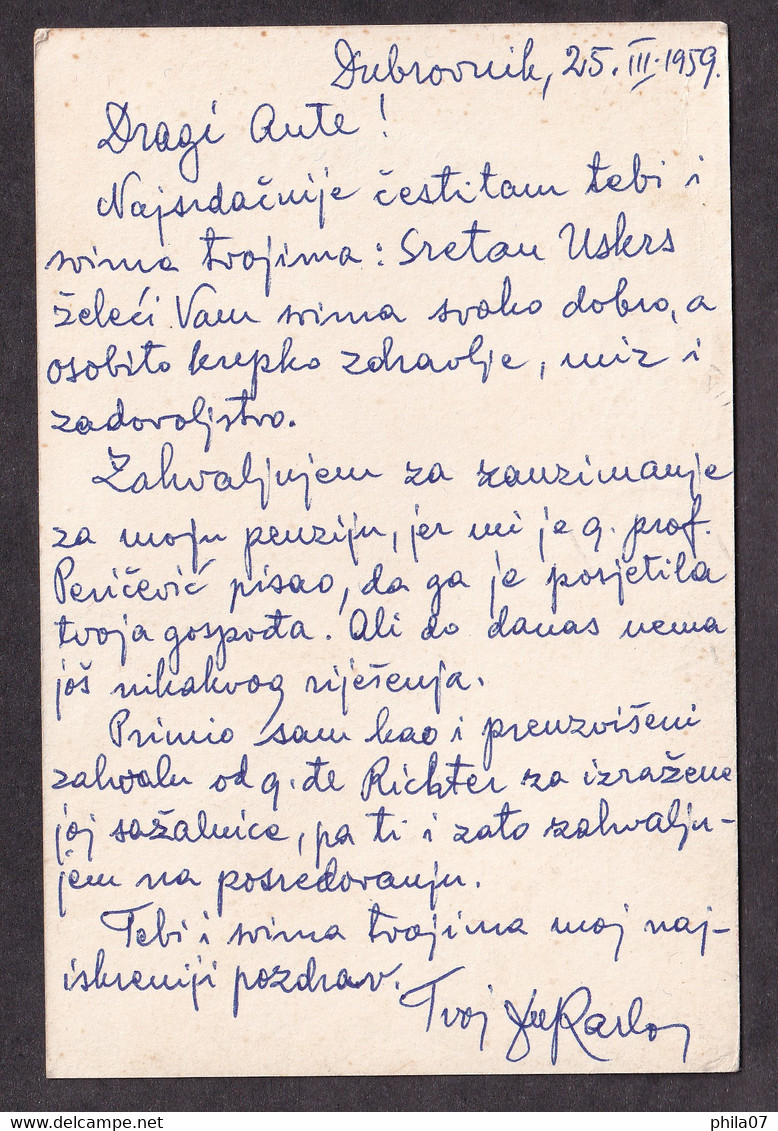 Dubrovnik, 25. III. 1959.
Dragi Ante!
Najsrdačnije čestitam tebi i
svima tvojima: Sretan Uskrs
želeći Vam svima svako dobro, a
osobito krepko zdravlje, mir i
zadovoljstvo.
Zahvaljujem za zauzimanje
za moju penziju, jer mi je g. prof.
Peričević pisao, da ga je posjetila
tvoja gospođa. Ali do danas nema
još nikakvog riješenja.
Primio sam kao i preuzvišeni
zahvalu od g. đe Richter za izražene
joj sažalnice, pa ti i zato zahvalju-
jem na posredovanju.
Tebi i svima tvojima moj naj-
iskreniji pozdrav.
Tvoj
phila07